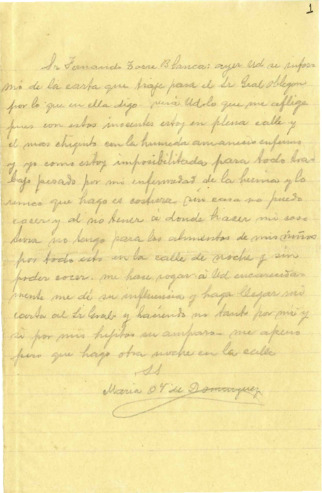 1
Sr Fernando Torre Blanca: ayer Ud se infor
mó de la carta que traje para el Sr Gral Obregon
por lo que en ella digo verá Ud lo que me aflige
pues con estos inocentes estoy en plena calle y
el mas chiquito con la humedad amanecio enfermo
y yo como estoy imposibilitada para todo tra
bajo pesado por mi enfermedad de la hernia y lo
unico que hago es costura sin casa no puedo
coser y al no tener a donde hacer mi cos
tura no tengo para los alimentos de mis niños
por todo esto en la calle de noche y sin
poder coser me hase rogar á Ud encarecida
mente me dé su influencia y haga llegar mi
carta al Sr Gral y haciendo no tanto por mi y
si por mis hijitos un amparo. me apena
pero que hago otra noche en la calle
SS
Maria de Dominguez